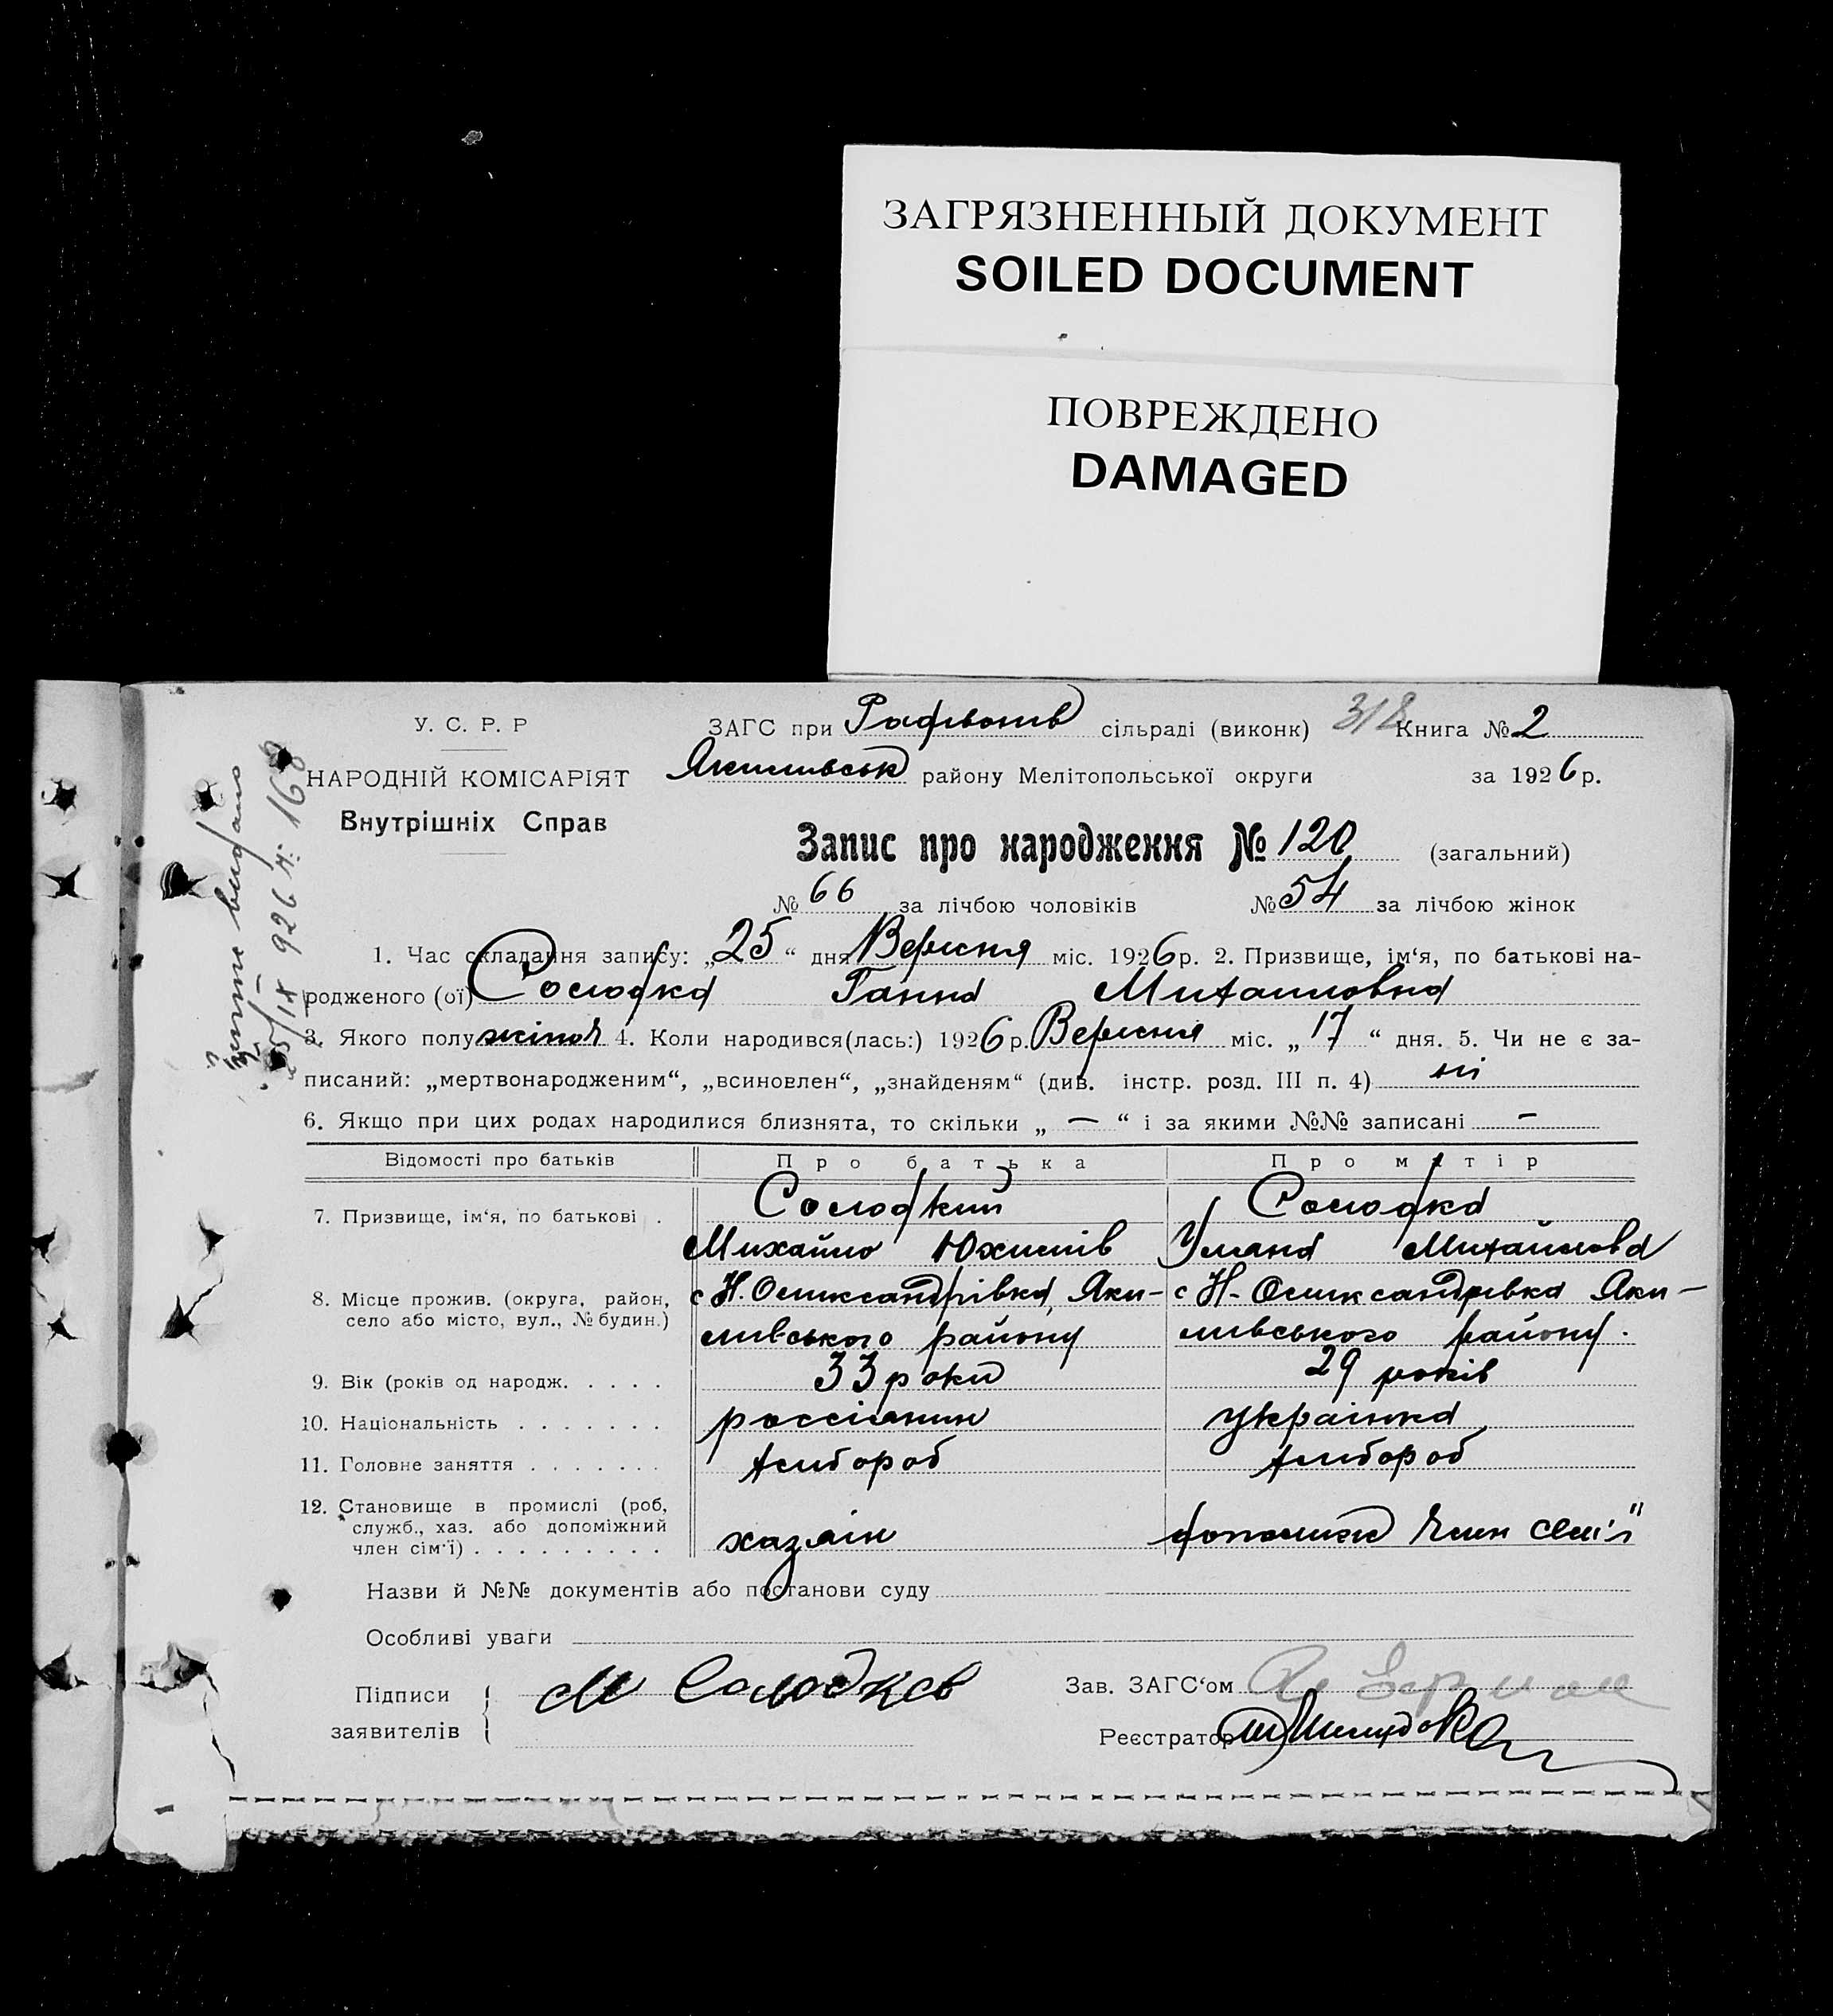 ЗАГРЯЗНЕННЫЙ ДОКУМЕНТ
SOILED DOCUMENT
ПОВРЕЖДЕНО
DAMAGED
У. С. Р. Р
НАРОДНІЙ КОМІСАРІЯТ
Внутрішніх Справ
ЗАГС при сільраді (виконк) 318 Книга № 2
Якимівськ району Мелітопольської округи за 1926 р.
Запис про народження № 120 (загальний)
№ 66 за лічбою чоловіків № 54 за лічбою жінок
1. Час складання запису: „25“ дня Вересня міс. 1926 р. 2. Призвище, ім‘я, по батькові на-
родженого (ої) Солодка Ганна Михаиловна
3. Якого полу жіноч 4. Коли народився(лась:) 1926 р. Вересня міс. „17“ дня. 5. Чи не є за-
писаний: „мертвонародженим“, „всиновлен“, „знайденям“ (див. інстр. розд. III п. 4) ні
6. Якщо при цих родах народилися близнята, то скільки „ — “ і за якими №№ записані —
Відомості про батьків Про батька Про матір
7. Призвище, ім‘я, по батькові . Солодкий Солодка
Михайло Юхимів Уляна Михайлова
8. Місце прожив. (округа, район, с Н. Олександрівка, Яки- с Н-Олександрівка Яки-
село або місто, вул., № будин.) мівського району мівського району.
9. Вік (років од народж. . . . . 33 роки 29 років
10. Національність . . . . . . . россіянин Українка
11. Головне заняття . . . . . . . хлібороб хлібороб
12. Становище в промислі (роб,
служб., хаз. або допоміжний
член сім‘ї) . . . . . . . . . хазяін допоміжн член сем'ї
Назви й №№ документів або постанови суду
Особливі уваги
Підписи
заявителів М Солодкев
Зав. ЗАГС‘ом
Реєстратор
видано
25/IX 926 ч. 168